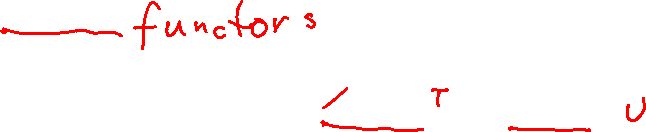 functors
T U